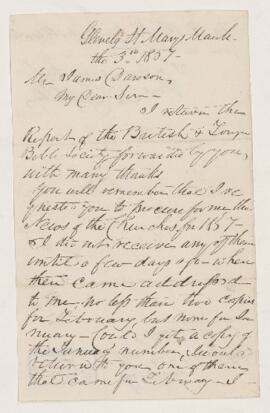 Glenelg St Mary's March
the 3rd 1857 -
Mr James Dawson,
My Dear Sir -
I return the
Report of the British & Foreign
Bible Society forwarded by you,
with many thanks
You will remember that I re-
quested you to procure for me the
News of the Churches for 1857 -
& I did not receive any of them
until a few days ago - when
there came addressed
to me no less than two copies
for February, but none for Ja-
nuary - Could I get a copy of
the January number, I would
return with you one of them
that came for February - I